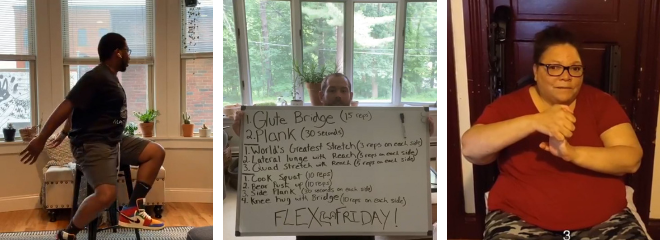 1. Glute Bridge (15 reps)
2. Plank (30 seconds)
1. World's Greatest Stretch (5 reps on each side)
2. Lateral lunge with Reach (5 reps on each side)
3. Quad Stretch with Reach (5 reps on each side)
1. Cook Squat (10 reps)
2. Bear Push up (10 reps)
3. Side Plank (seconds on each side)
4. Knee hug with Bridge (10 reps on each side)
FLEX FRIDAY!
3